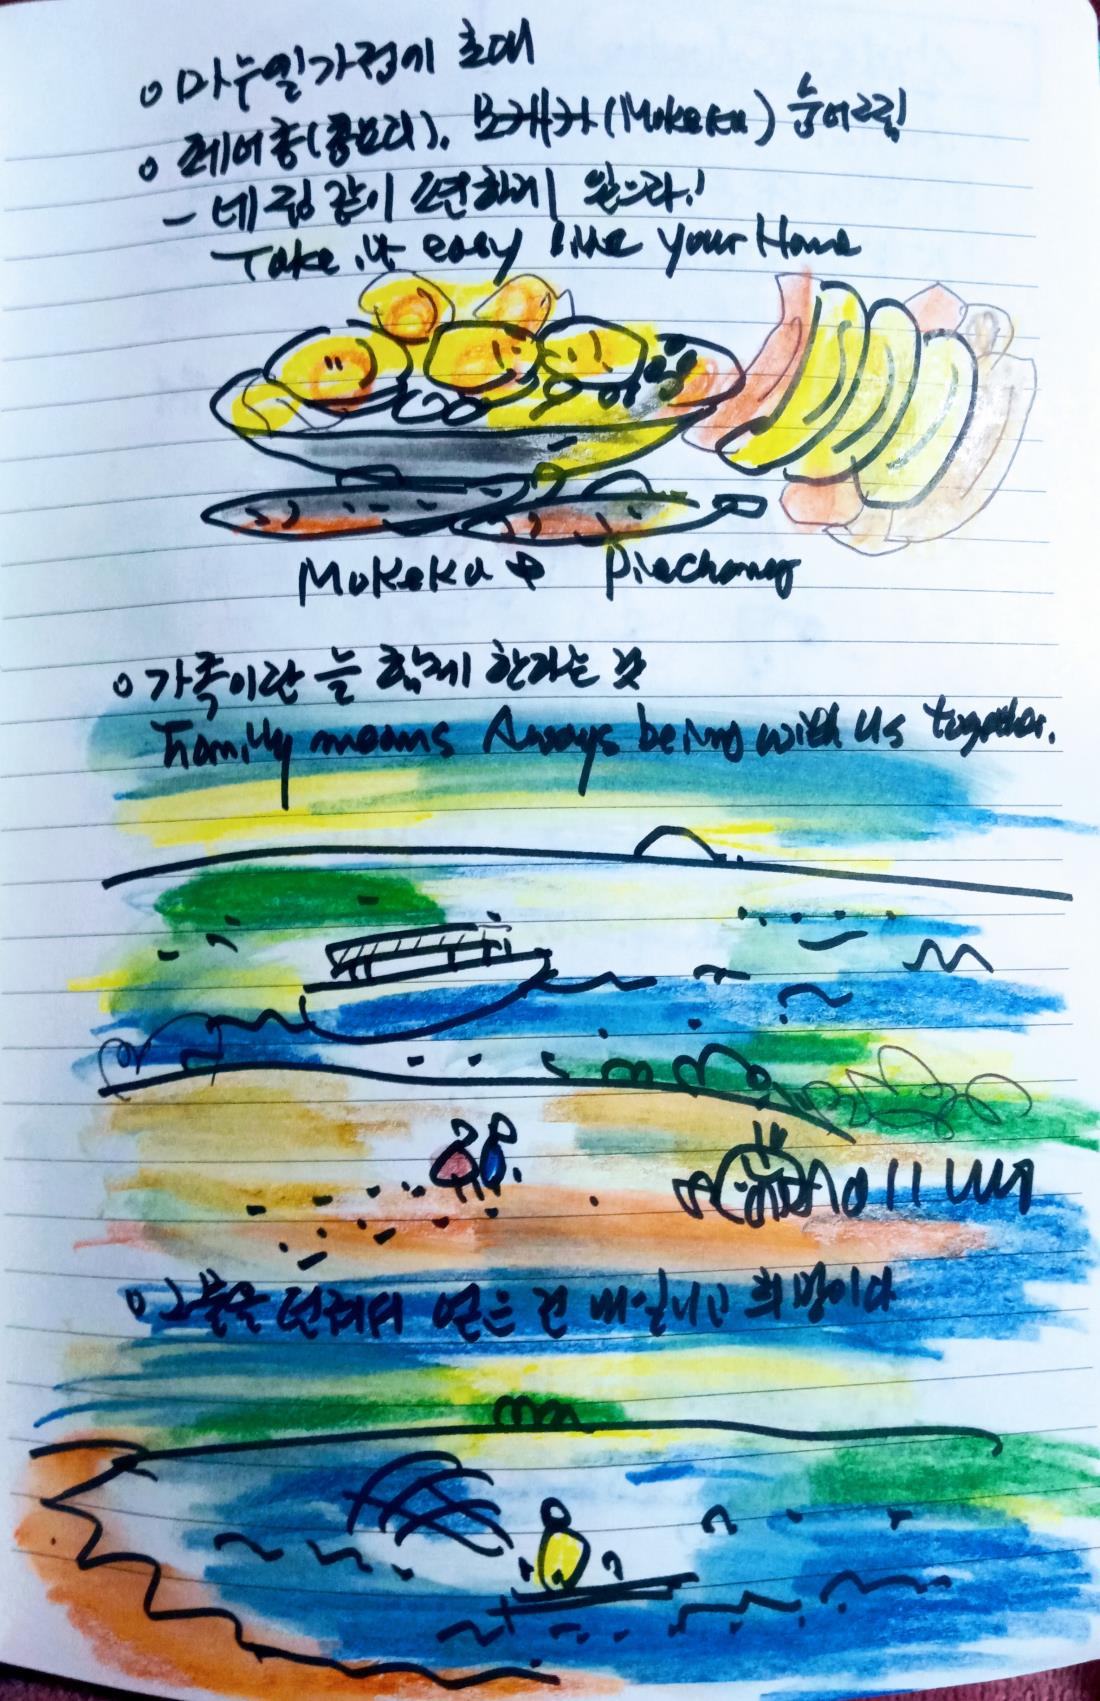 o 마누엘가정에 초대
o 페어홍(콩요리), 모케카(Mokeka) 숭어그릴
- 네 집 같이 편하게 있으라!
Take it easy like your Home
Mokeka 
o 가족이란 늘 함께 한다는 것
Family means Aways being with us together.
o 그물을 던져서 얻은 건 내일이고 희망이다